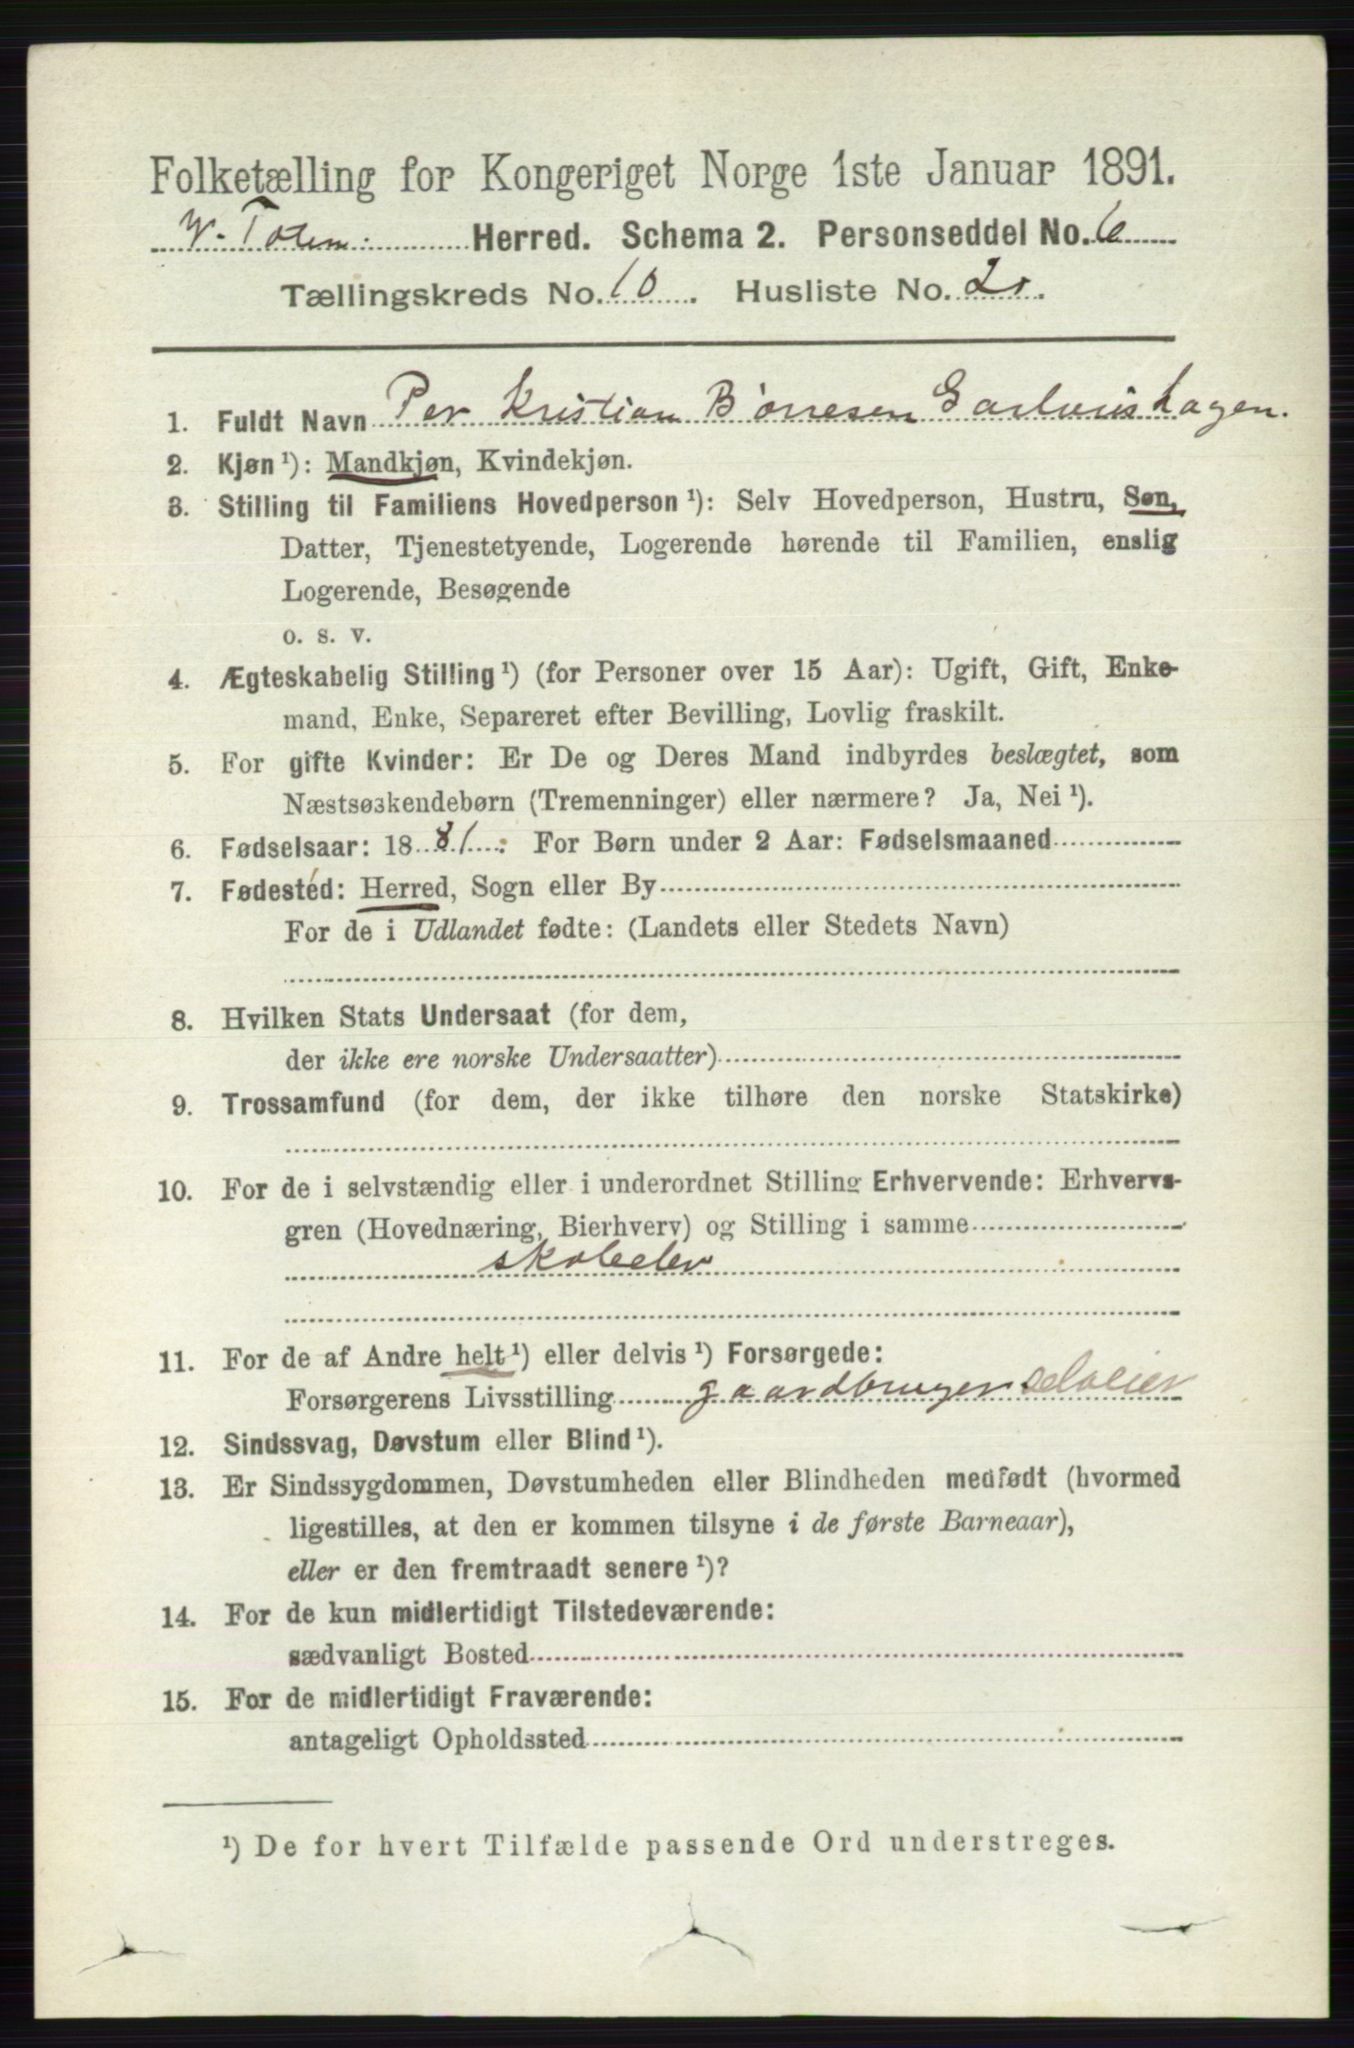 Folketælling for Kongeriget Norge 1ste Januar 1891.
V. Toten. Herred. Schema 2. Personseddel No. 6
Tællingskreds No. 10. Husliste No.
1. Fuldt Navn Per Kristian Børresen
2. Kjøn ¹): Mandkjøn, Kvindekjøn.
3. Stilling til Familiens Hovedperson ¹): Selv Hovedperson, Hustru, Søn,
Datter, Tjenestetyende, Logerende hørende til Familien, enslig
Logerende, Besøgende
o. s. v.
4. Ægteskabelig Stilling ¹) (for Personer over 15 Aar): Ugift, Gift, Enke-
mand, Enke, Separeret efter Bevilling, Lovlig fraskilt.
5. For gifte Kvinder: Er De og Deres Mand indbyrdes beslægtet, som
Næstsøskendebørn (Tremenninger) eller nærmere? Ja, Nei ¹).
6. Fødselsaar: 1881. For Børn under 2 Aar: Fødselsmaaned
7. Fødested: Herred, Sogn eller By
For de i Udlandet fødte: (Landets eller Stedets Navn)
8. Hvilken Stats Undersaat (for dem,
der ikke ere norske Undersaatter)
9. Trossamfund (for dem, der ikke tilhøre den norske Statskirke)
10. For de i selvstændig eller i underordnet Stilling Erhvervende: Erhvervs-
gren (Hovednæring, Bierhverv) og Stilling i samme
skoleelev
11. For de af Andre helt ¹) eller delvis ¹) Forsørgede:
Forsørgerens Livsstilling gaardbruger selveier
12. Sindssvag, Døvstum eller Blind ¹).
13. Er Sindssygdommen, Døvstumheden eller Blindheden medfødt (hvormed
ligestilles, at den er kommen tilsyne i de første Barneaar),
eller er den fremtraadt senere ¹)?
14. For de kun midlertidigt Tilstedeværende:
sædvanligt Bosted
15. For de midlertidigt Fraværende:
antageligt Opholdssted
¹) De for hvert Tilfælde passende Ord understreges.